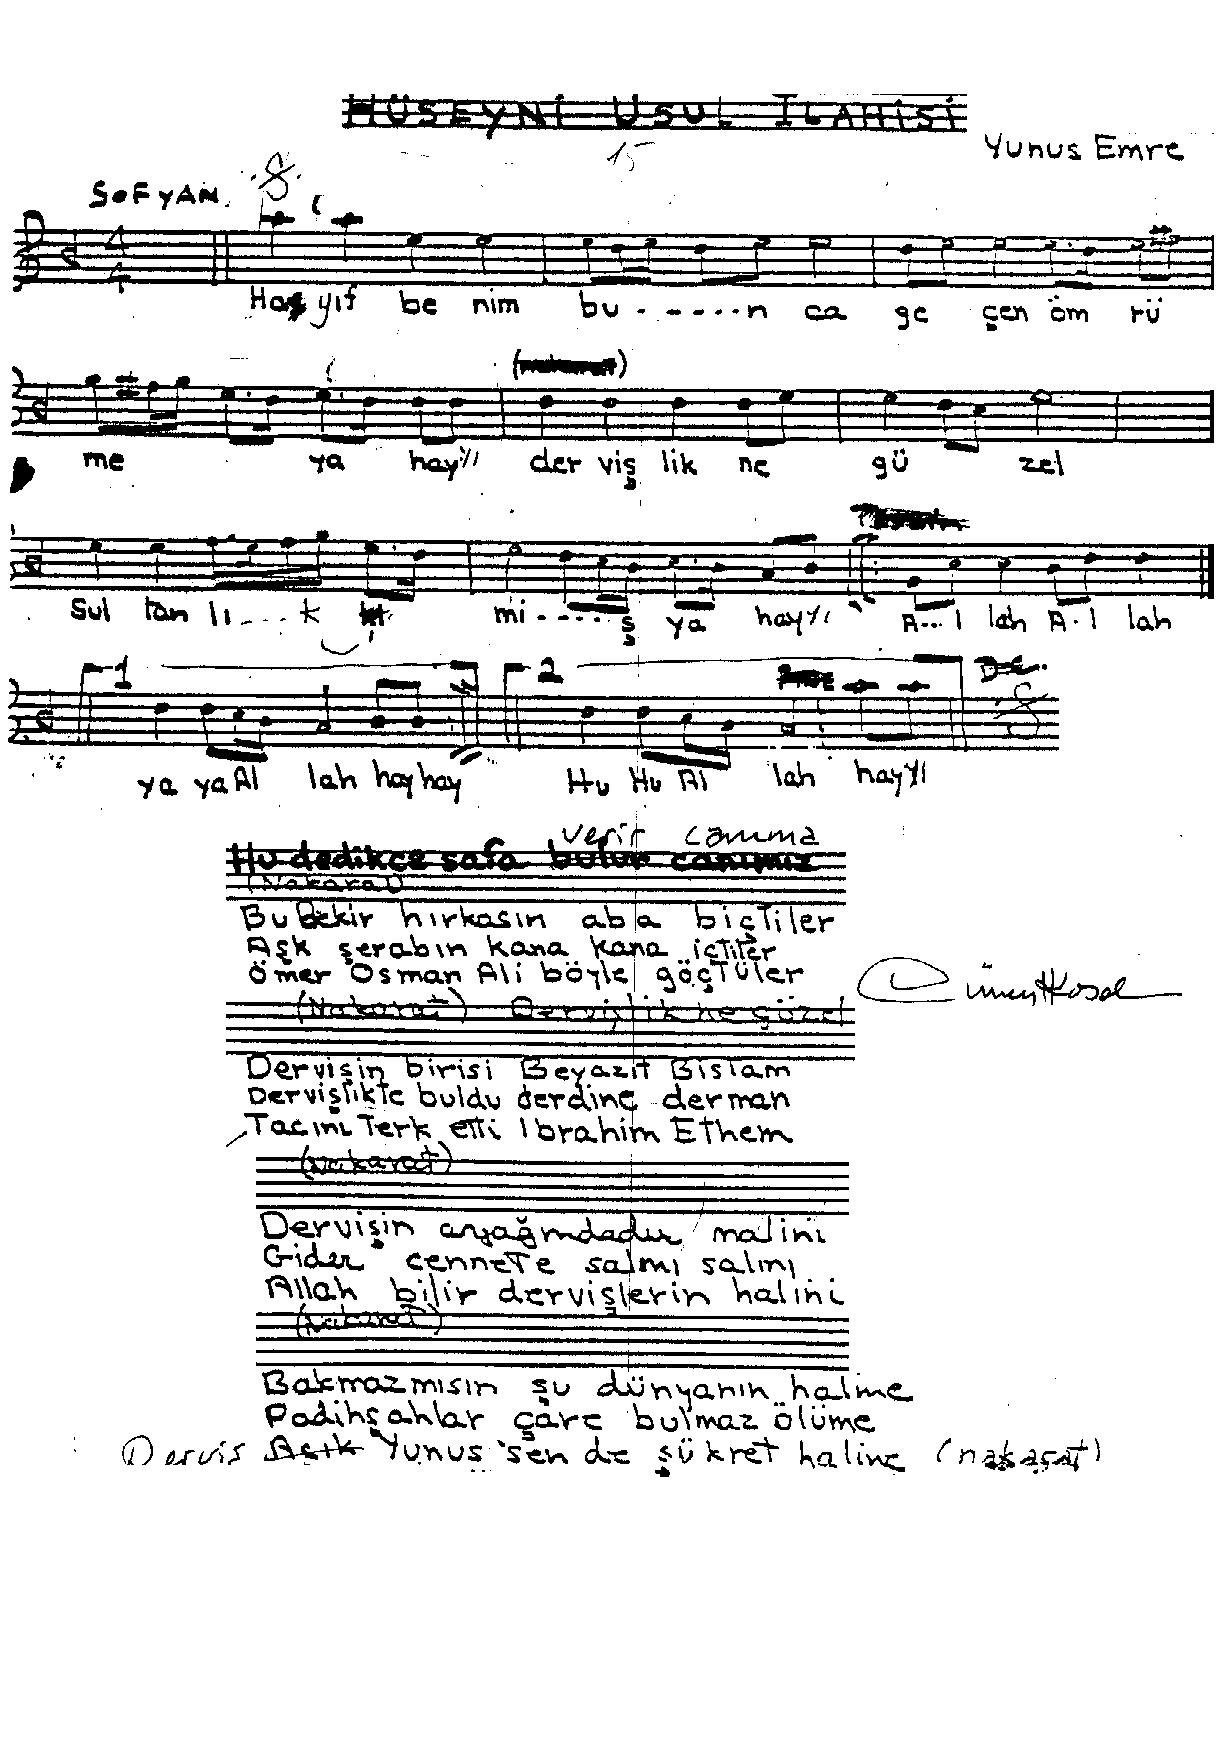 HÜSEYNİ USUL İLAHİSİ
15
Yunus Emre
SOFYAN.
4
4
Hay yıf be nim bu - - - - - n ca ge çen öm rü
me ya hayyı der viş lik ne gü zel
Sul tan lı . . . . k mi - - - - ş ya hayyı A - - l lah A . l lah
1 2
ya ya ya Al lah hay hay Hu Hu Al lah hayyı
verir canıma
Hu dedikçe safa bulur canımız
(Nakarat)
Bu Bekir hırkasın aba biçtiler
Aşk şerabın kana kana içtiler
Ömer Osman Ali böyle göçtüler
(Nakarat) Dervişlik ne güzel
Dervişin birisi Beyazıt Bistam
Dervişlikte buldu derdine derman
Tacını Terk etti İbrahim Ethem
(Nakarat)
Dervişin ayağındadır nalini
Gider cennete salını salını
Allah bilir dervişlerin halini
(Nakarat)
Bakmazmısın şu dünyanın haline
Padihşahlar çare bulmaz ölüme
Derviş Aşık Yunus sen de şükret haline (nakarat)